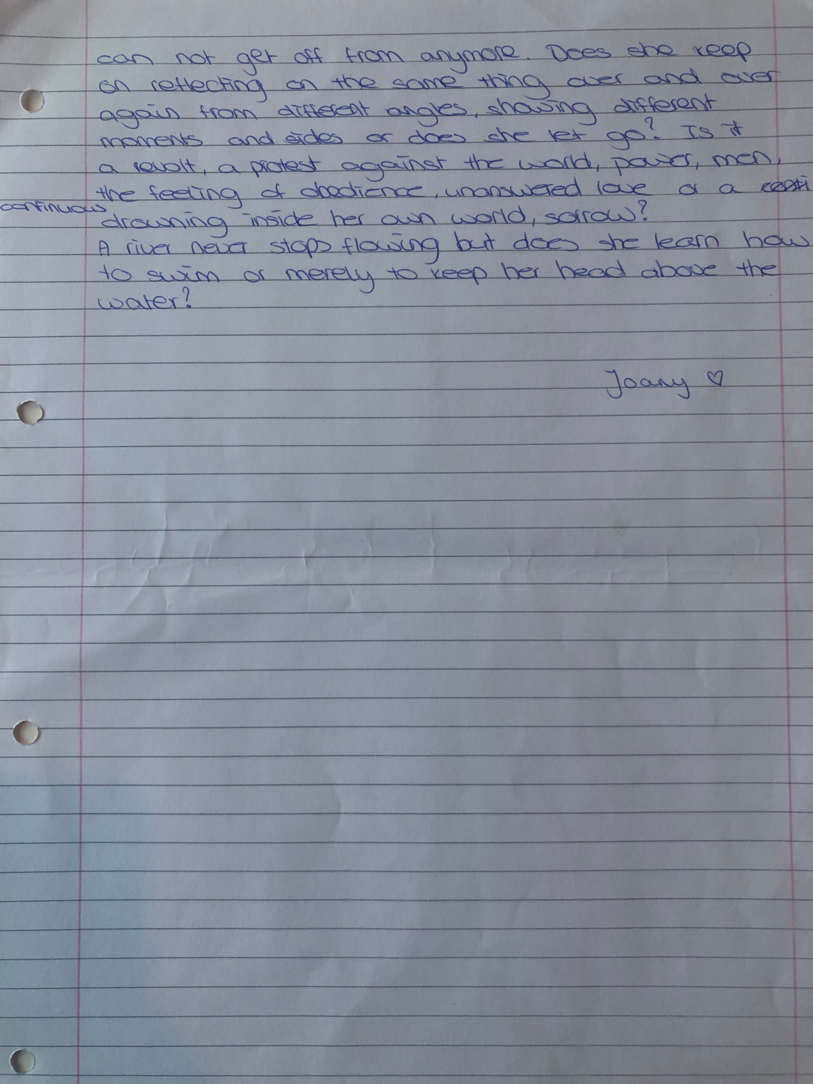 can not get off from anymore. Does she keep
on reflecting on the same thing over and over
again from different angles, showing different
moments and sides or does she let go? Is it
a revolt, a protest against the world, power, men,
the feeling of obedience, unanswered love or a
continuous drowning inside her own world, sorrow?
A river never stops flowing but does she learn how
to swim or merely to keep her head above the
water?
Joany ♡